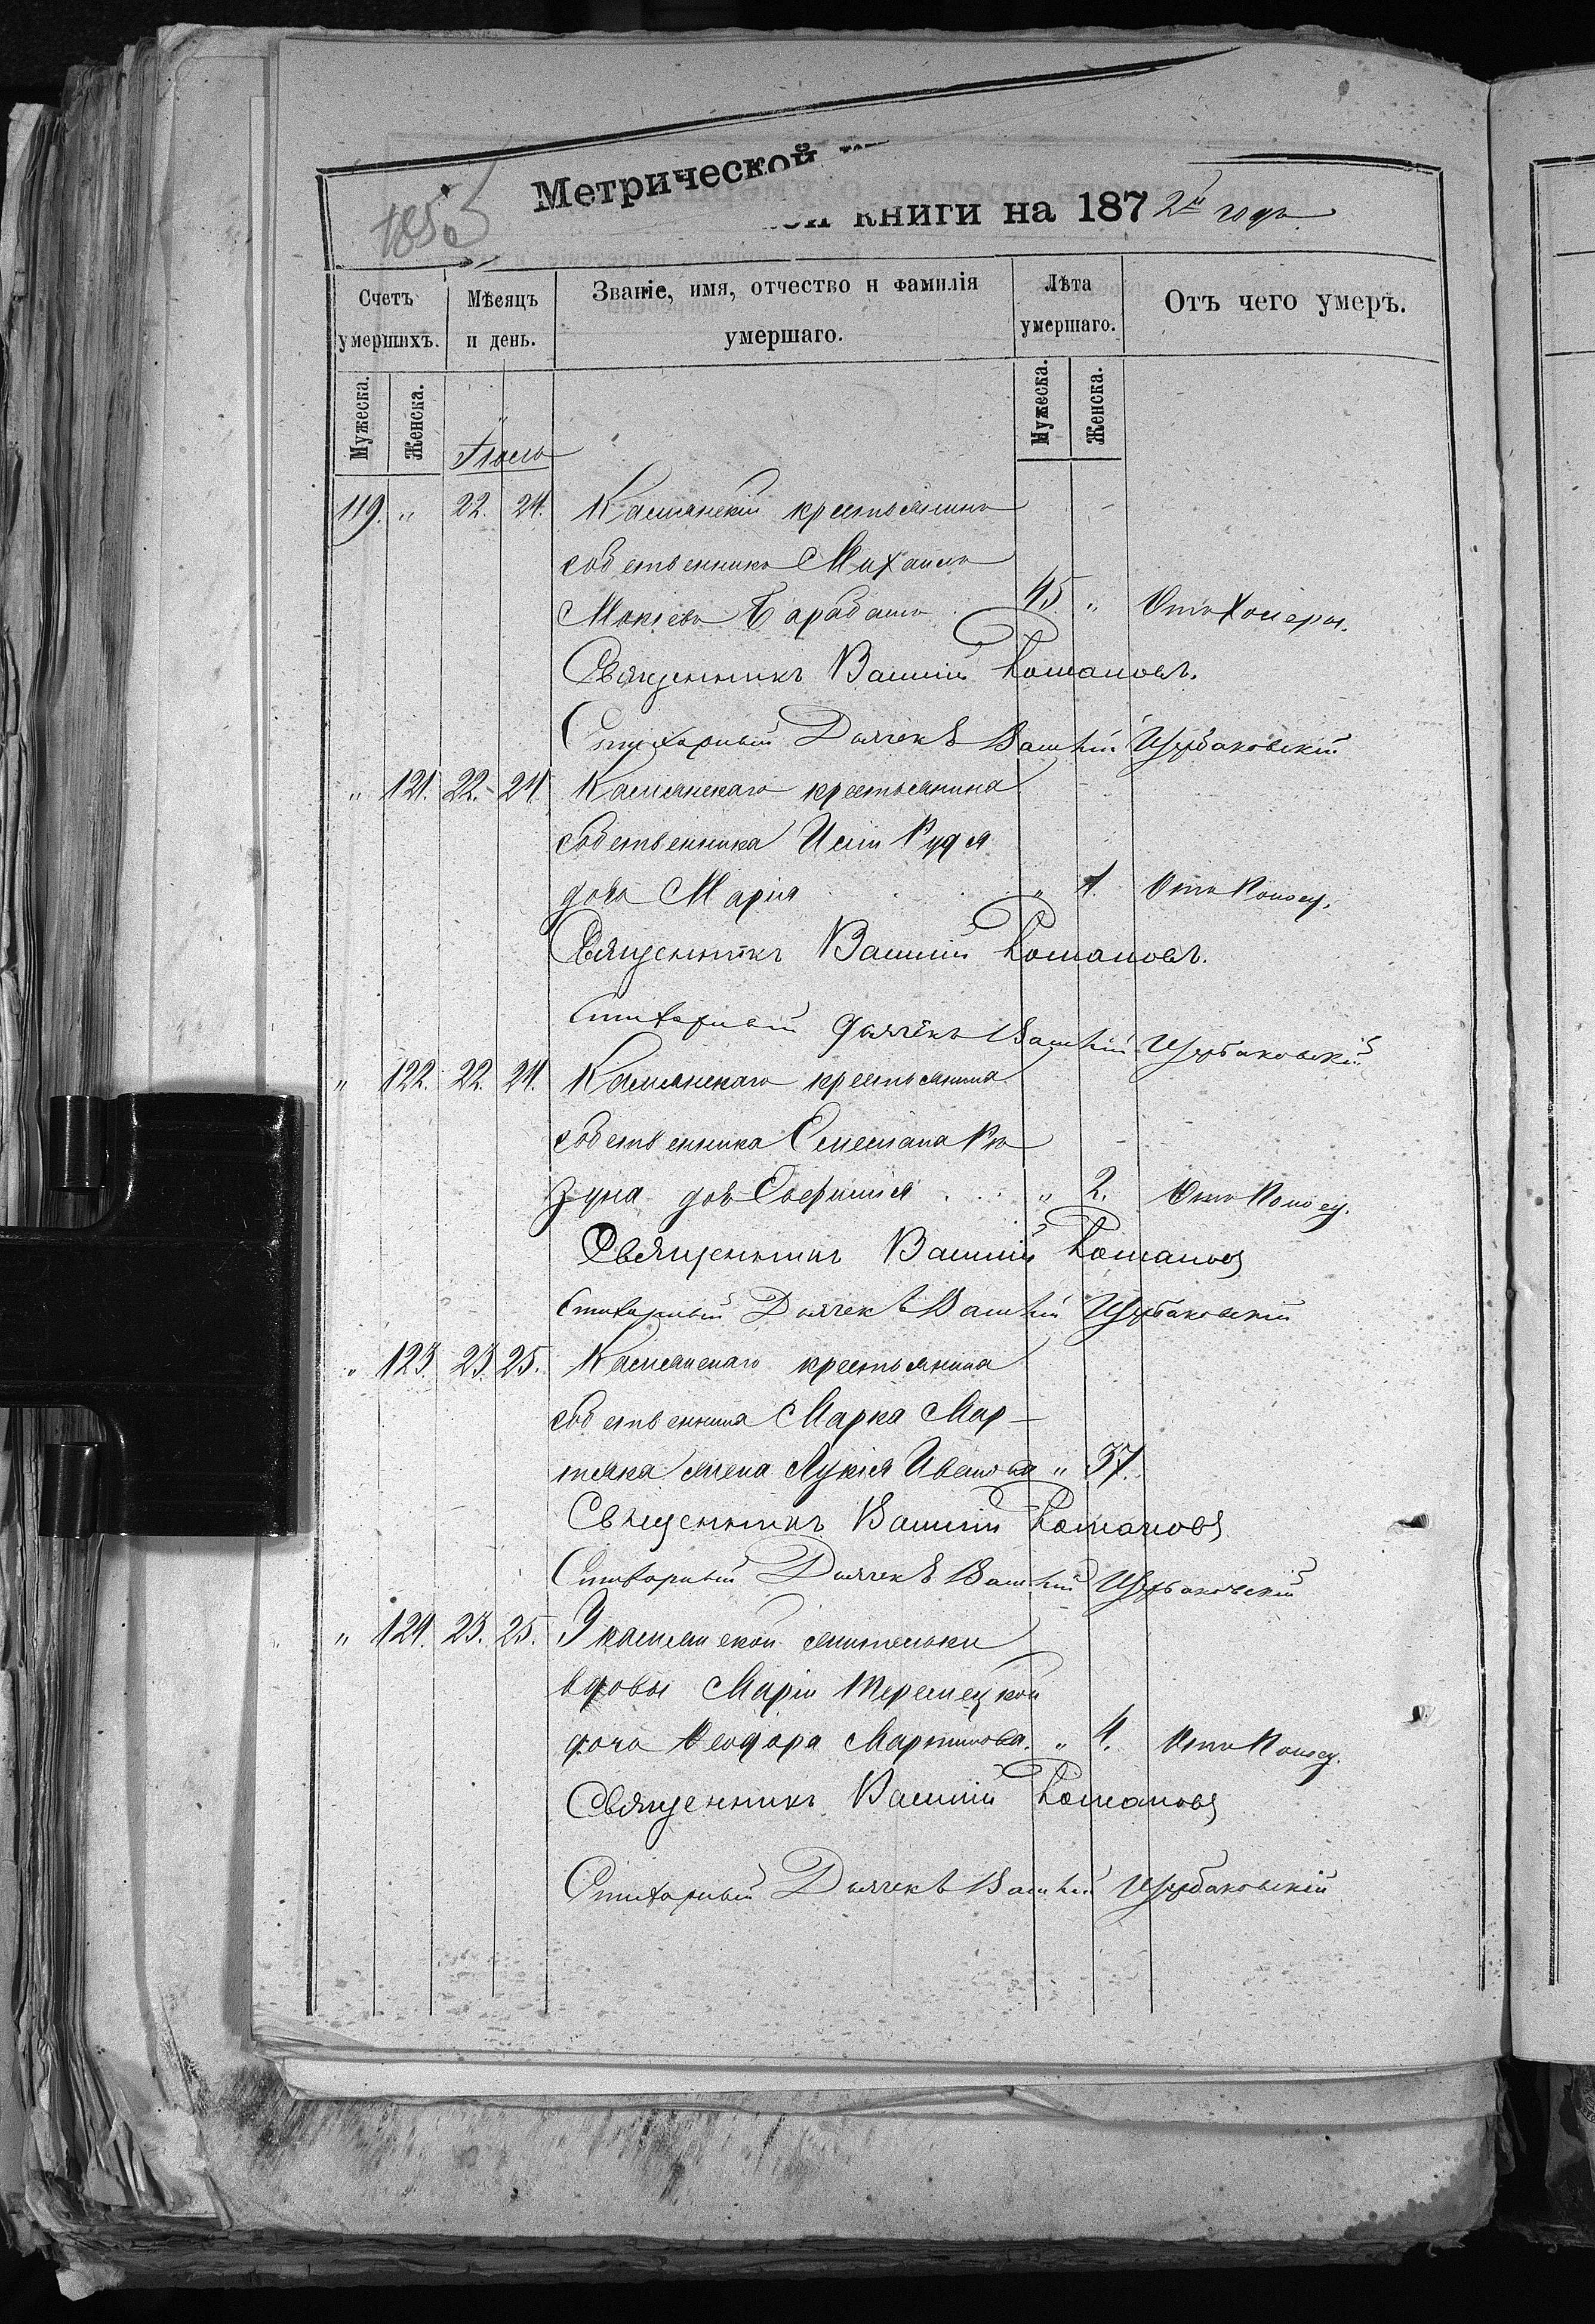 Метрической
книги на 1872й годъ
Счетъ умершихъ. Мѣсяцъ и день. Званіе, имя, отчество и фамилія умершаго. Лѣта умершаго. Отъ чего умеръ.
Мужеска. Женска. Мужеска. Женска.
Іюль
119. " 22. 24. Камянскій крестьянинъ
собственникъ Михаилъ
Мокіевъ Барабашъ 45 " Отъ Холеры.
Священникъ Василій Романовъ.
Стихарный Дьячекъ Василій Щербаковскій
" 121. 22. 24. Камянскаго крестьянина
собственника
дочь Марія " 1. Отъ Поносу.
Священникъ Василій Романовъ.
Стихарный дьячекъ Василій Щербаковскій
" 122. 22. 24. Камянскаго крестьянина
собственника
дочь " 2. Отъ Поносу.
Священникъ Василій Романовъ
Стихарный Дьячекъ Василій Щербаковскій
" 123. 23. 25. Камянскаго крестьянина
собственника Марка Мар-
тяка жена Лукія Иванова " 37.
Священникъ Василій Романовъ
Стихарный Дьячекъ Василій Щербаковскій
" 124. 23. 25. жительки
вдовы Маріи
дочь Феодора Мартинова. " 4. Отъ Поносу.
Священникъ Василій Романовъ
Стихарный Дьячекъ Василій Щербаковскій